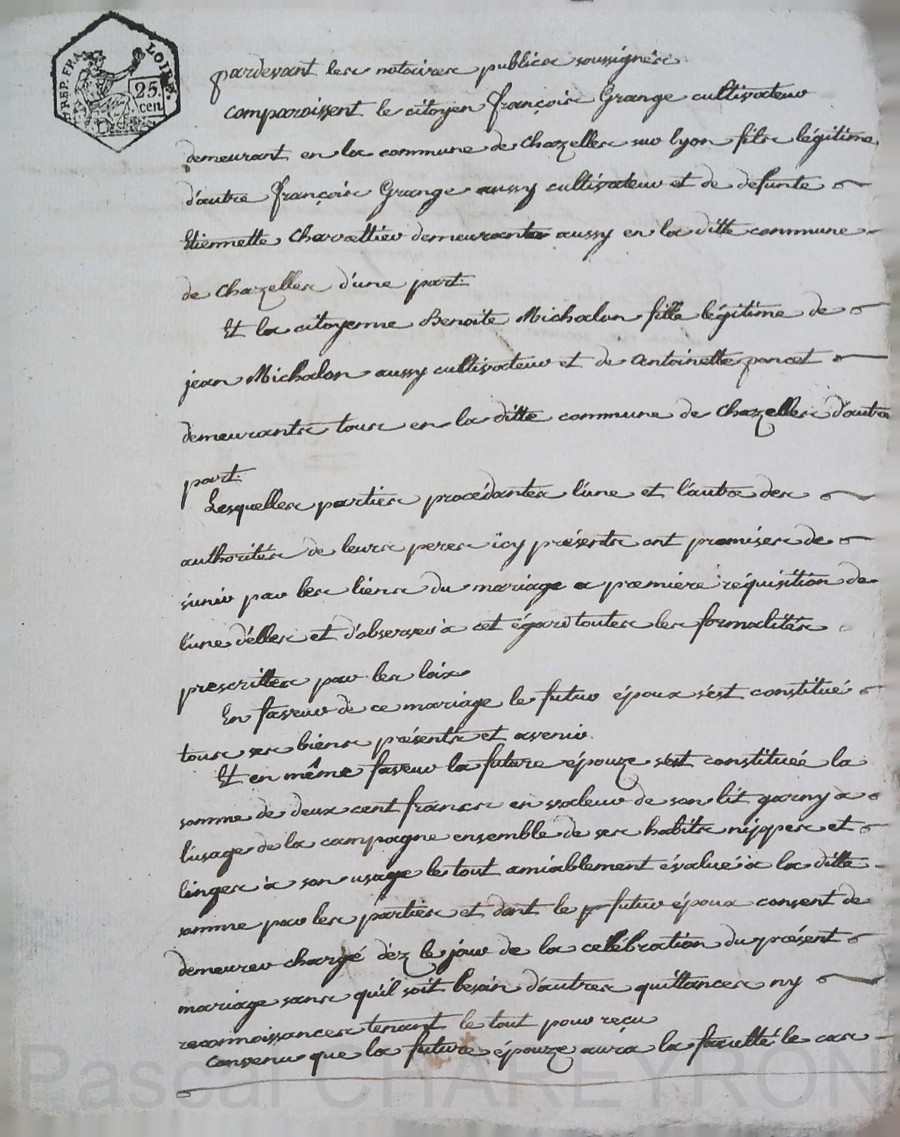 REP. FRA. LOIRE.
25. cen
pardevant les notaires publics soussignés
comparoissent le citoyen françois Grange cultivateur
demeurant en la commune de chazelles sur lyon fils légitime
d'autre françois Grange aussy cultivateur et de defunte
Etiennette Charvattier demeurants aussy en la ditte commune
de chazelles d'une part.
Et la citoyenne Benoite Michalon fille légitime de
jean Michalon aussy cultivateur et de antoinette poncet
demeurants tous en la ditte commune de chazelles d'autre
part.
Lesquelles parties procédantes l'une et l'autre des
authorités de leurs peres icy présents ont promises de
s'unir par les liens du mariage a premiere réquisition de
l'une d'elles et d'observer a cet égard toutes les formalités
prescrittes par les loix
En faveur de ce mariage le futur époux s'est constitué
tous ses biens présents et avenir.
Et en même faveur la future épouze s'est constituée la
somme de deux cent francs en valeur de son lit garny a
l'usage de la campagne ensemble de ses habits nippes et
linges a son usage le tout amiablement évalué a la ditte
somme par les parties et dont le futur époux consent de
demeurer chargé dez le jour de la célébration du présent
mariage sans qu'il soit besoin d'autres quittances ny
reconnoissances tenant le tout pour reçu
Convenu que la future épouze aura la faculté le cas
Pascal CHAREYRON